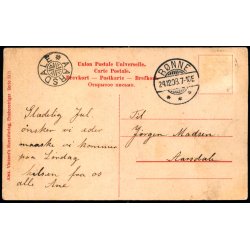 Union Postale Universelle.
Carte Postale.
Brevkort — Postkarte — Brefkort
Открытое письмо.
AARSDALE
RØNNE
24.12.08. 7-10E
Glædelig Jul,
ønsker vi eder
maaske vi kommer
paa Lördag
hilsen fra os
alle Ane
Til
Jørgen Madsen
Aarsdale